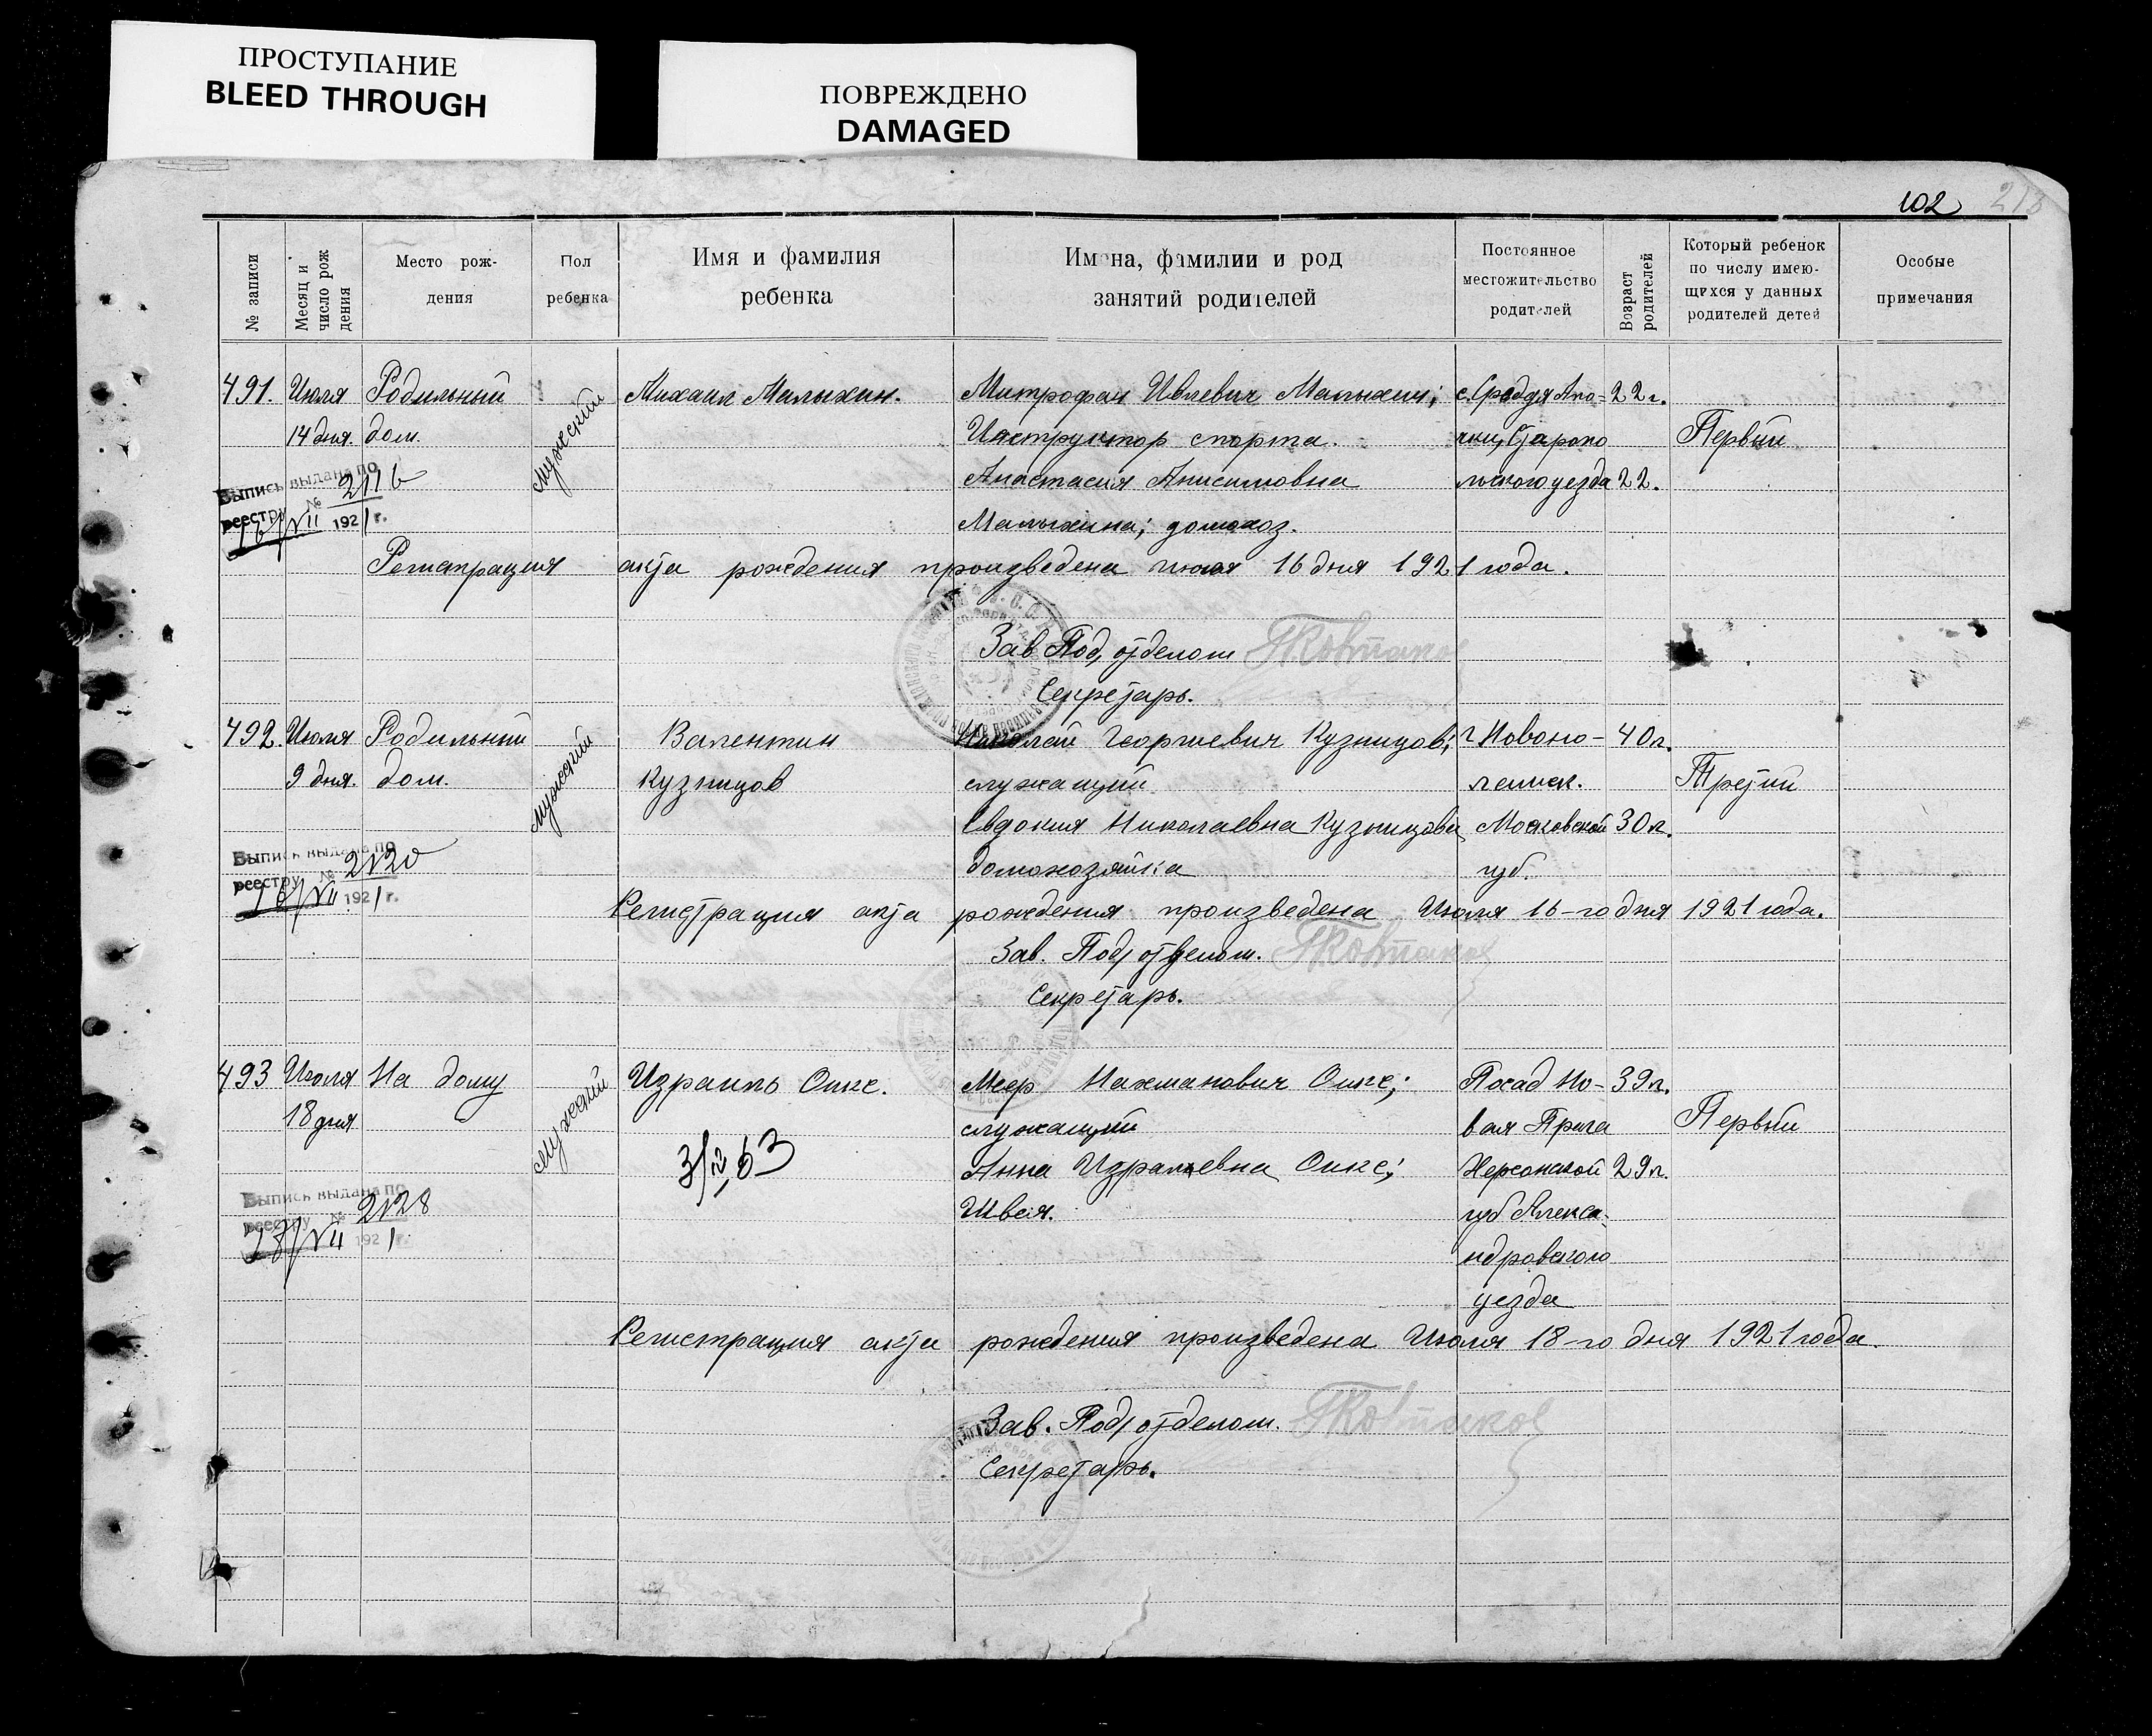 ПРОСТУПАНИЕ
BLEED THROUGH
ПОВРЕЖДЕНО
DAMAGED
102 218
№ записи
Месяц и число рождения
Место рож-
дения
Пол
ребенка
Имя и фамилия
ребенка
Имена, фамилии и род
занятий родителей
Постоянное
местожительство
родителей
Возраст
родителей
Который ребенок
по числу имею-
щихся у данных
родителей детей
Особые
примечания
491. Июля Родильный мужской Михаил Малыхин. Митрофан Ивлевич Малыхин; 22 г.
14 дня. дом. Инструктор спорта. Первый
Анастасия Анисимовна уезда 22.
Малыхина; домохоз.
Выпись выдана по
реестру № 2116
16/VII 1921 г.
Регистрация акта рождения произведена июля 16 дня 1921 года.
Зав. Под, отделом
Секретарь.
492. Июля Родильный мужской Валентин Николай Георгиевич Кузнецов; г Ново- 40 л.
9 дня. дом. Кузнецов служащий Третий
Евдокия Николаевна Кузнецова Московской 30 л.
домохозяйка губ.
Выпись выдана по
реестру № 2120
16/VII 1921 г.
Регистрация акта рождения произведена Июля 16-го дня 1921 года.
Зав. Под, отделом.
Секретарь.
493 Июля На дому мужский Израиль Оикс. Меер Нахманович Оикс; Посад Но- 39 л.
18 дня служащий вая Прага Первый
Анна Израилевна Оикс; Херсонской 29 л.
Швея. губ Алекса-
ндровского
уезда
3/12 63
Выпись выдана по
реестру № 2128
18/VII 1921 г.
Регистрация акта рождения произведена Июля 18-го дня 1921 года.
Зав. Под, отделом.
Секретарь.